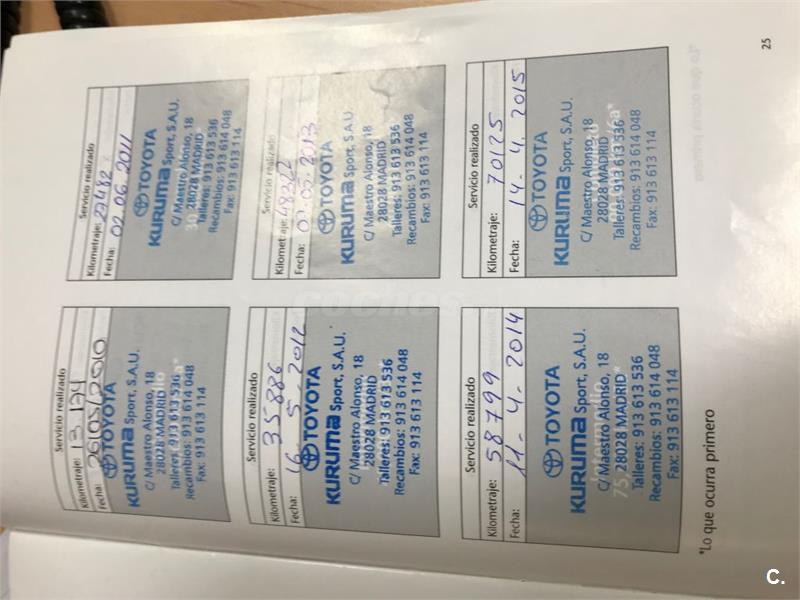 Servicio realizado
Kilometraje: 13.174
Fecha: 26/05/2010
TOYOTA
KURUMA Sport, S.A.U.
C/ Maestro Alonso, 18
28028 MADRID
Talleres: 913 613 536
Recambios: 913 614 048
Fax: 913 613 114
Servicio realizado
Kilometraje: 27482
Fecha: 02.06.2011
TOYOTA
KURUMA Sport, S.A.U.
C/ Maestro Alonso, 18
28028 MADRID
Talleres: 913 613 536
Recambios: 913 614 048
Fax: 913 613 114
Servicio realizado
Kilometraje: 35886
Fecha: 16.5.2012
TOYOTA
KURUMA Sport, S.A.U.
C/ Maestro Alonso, 18
28028 MADRID
Talleres: 913 613 536
Recambios: 913 614 048
Fax: 913 613 114
Servicio realizado
Kilometraje: 48322
Fecha: 07.05.2013
TOYOTA
KURUMA Sport, S.A.U.
C/ Maestro Alonso, 18
28028 MADRID
Talleres: 913 613 536
Recambios: 913 614 048
Fax: 913 613 114
Servicio realizado
Kilometraje: 58799
Fecha: 11-4-2014
TOYOTA
KURUMA Sport, S.A.U.
Intermedio
C/ Maestro Alonso, 18
28028 MADRID
Talleres: 913 613 536
Recambios: 913 614 048
Fax: 913 613 114
Servicio realizado
Kilometraje: 70125
Fecha: 14.4.2015
TOYOTA
KURUMA Sport, S.A.U.
C/ Maestro Alonso, 18
28028 MADRID
Talleres: 913 613 536
Recambios: 913 614 048
Fax: 913 613 114
*Lo que ocurra primero
25
coches
C.